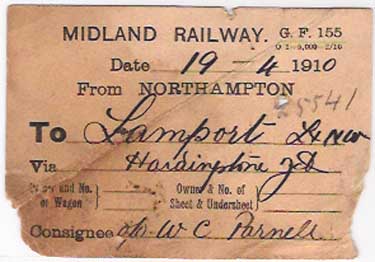 MIDLAND RAILWAY. G. F. 155
Date 19 - 4 1910
From NORTHAMPTON
25541
To Lamport L & NW
Via Hardingstone Jct
Owner and No. of Wagon } Owner & No. of Sheet & Undersheet }
Consignee W C Parnell